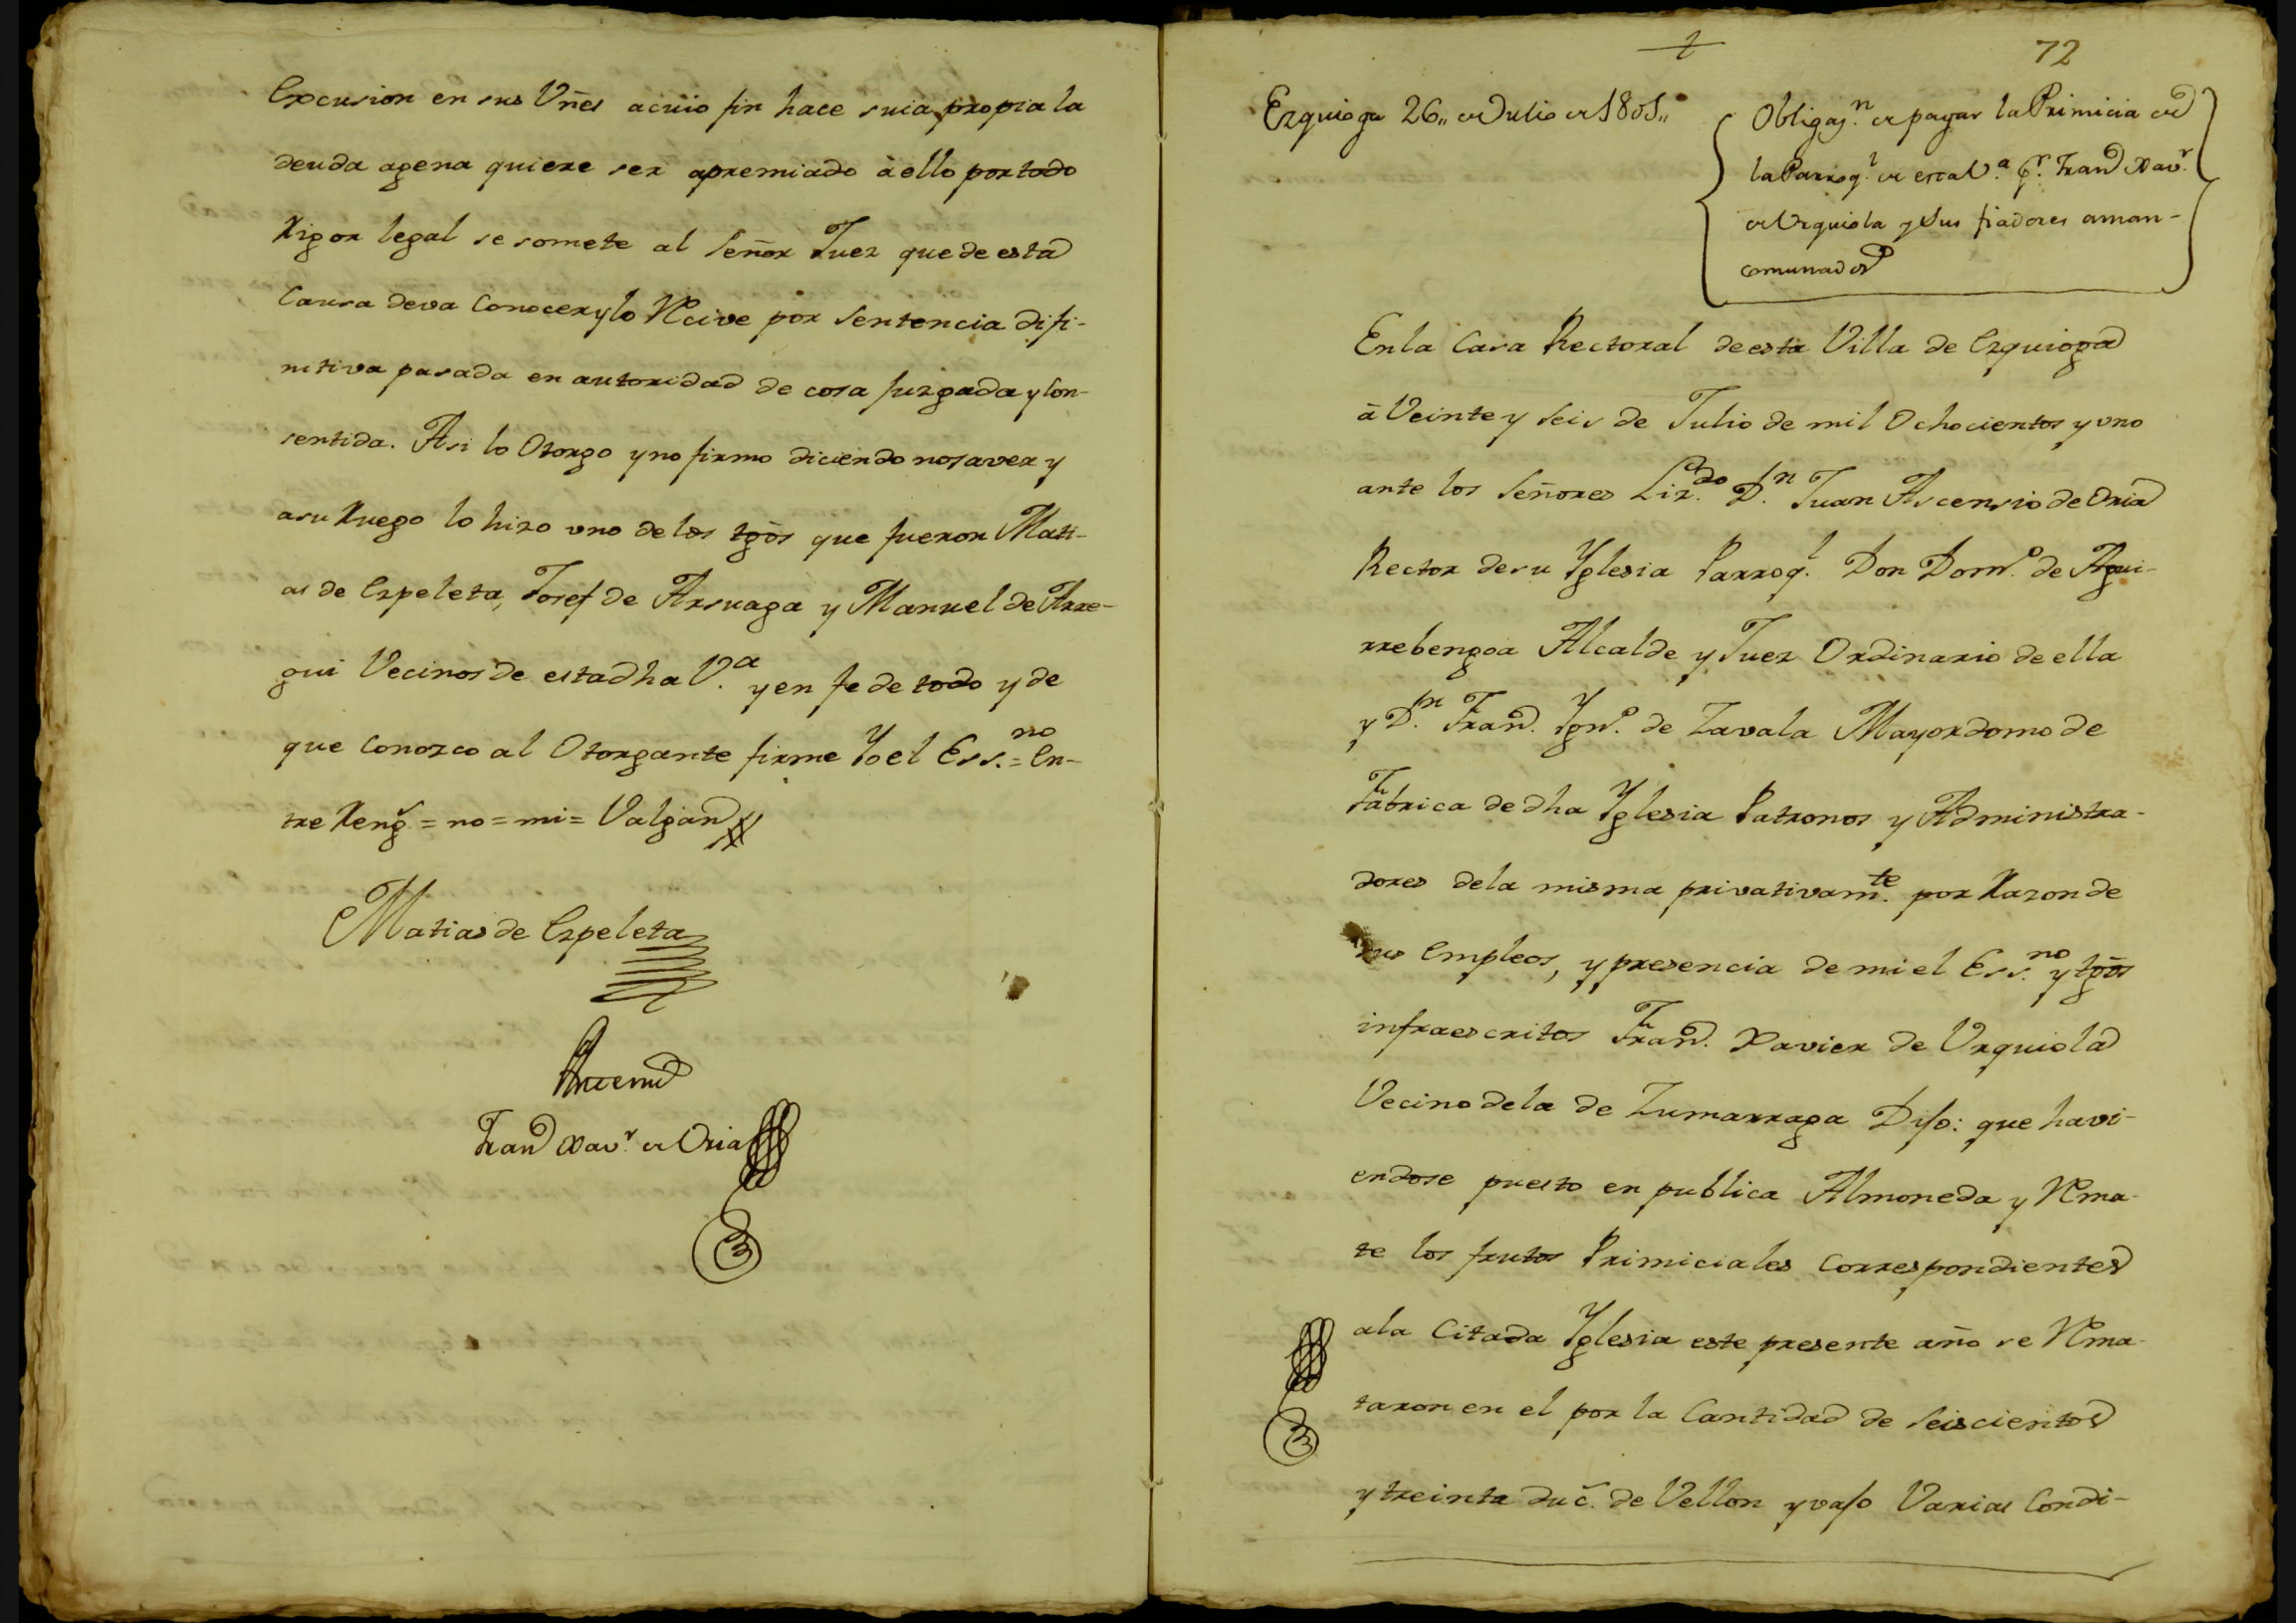 Excusion en sus Vñes acuio fin hace suia propia la
deuda agena quiere ser apremiado à ello por todo
Rigor legal se somete al Señor Juez que de esta
Causa deva Conocer y lo Recive por Sentencia difi-
nitiva pasada en autoridad de cosa juzgada y Con-
sentida. Asi lo Otorgo y no firmo diciendo no saver y
a su Ruego lo hizo uno de los tgõs que fueron Mati-
as de Ezpeleta, Josef de Arsuaga y Manuel de Arre-
gui Vecinos de esta dha V.ª y en fe de todo y de
que Conozco al Otorgante firme Yo el Ess.no = En-
tre Reng.s = no = mi = Valgan
Matias de Ezpeleta
Antemi
Fran.co Xav.r de Oria
72
Ezquioga 26,, de Julio de 1801,,
Obligaz.n de pagar la Primicia de
la Parroq.l de esta V.a p.r Fran.co Xav.r
de Urquiola y sus fiadores aman-
comunados
En la Casa Rectoral de esta Villa de Ezquioga
à Veinte y seis de Julio de mil Ochocientos y uno
ante los Señores Liz.do D.n Juan Ascensio de Oria
Rector de su Yglesia Parroq.l Don Dom.o de Agui-
rrebengoa Alcalde y Juez Ordinario de ella
y D.n Fran.co Ygn.o de Zavala Mayordomo de
Fabrica de dha Yglesia Patronos y Administra-
dores de la misma privativam.te por Razon de
sus Empleos, y presencia de mi el Ess.no y tgõs
infraescritos Fran.co Xavier de Urquiola
Vecino de la de Zumarraga Dijo: que havi-
endose puesto en publica Almoneda y Rema-
te los frutos Primiciales Correspondientes
a la Citada Yglesia este presente año se Rema-
taron en el por la Cantidad de Seiscientos
y treinta duc.s de Vellon y vajo Varias Condi-